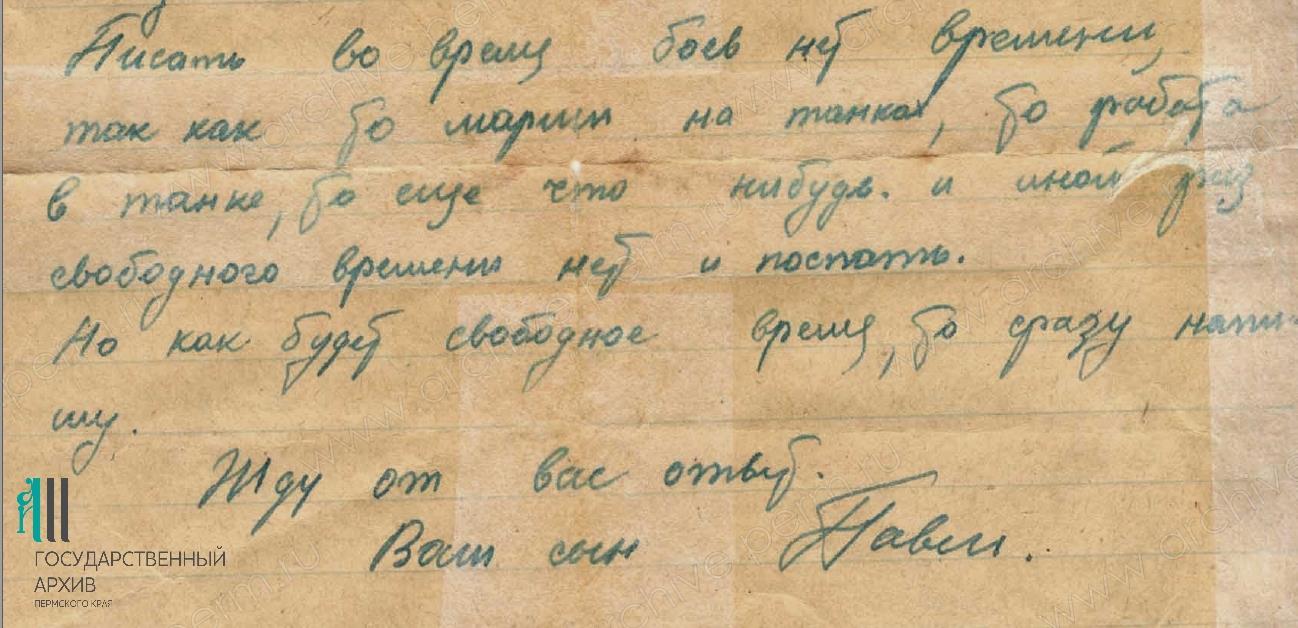 Писать во время боев нет времени,
так как то марши на танках, то работа
в танке, то еще что нибудь. и иной раз
свободного времени нет и поспать.
Но как будет свободное время, то сразу напи-
шу.
Жду от вас ответ.
Ваш сын Павел.
ГОСУДАРСТВЕННЫЙ
АРХИВ
ПЕРМСКОГО КРАЯ